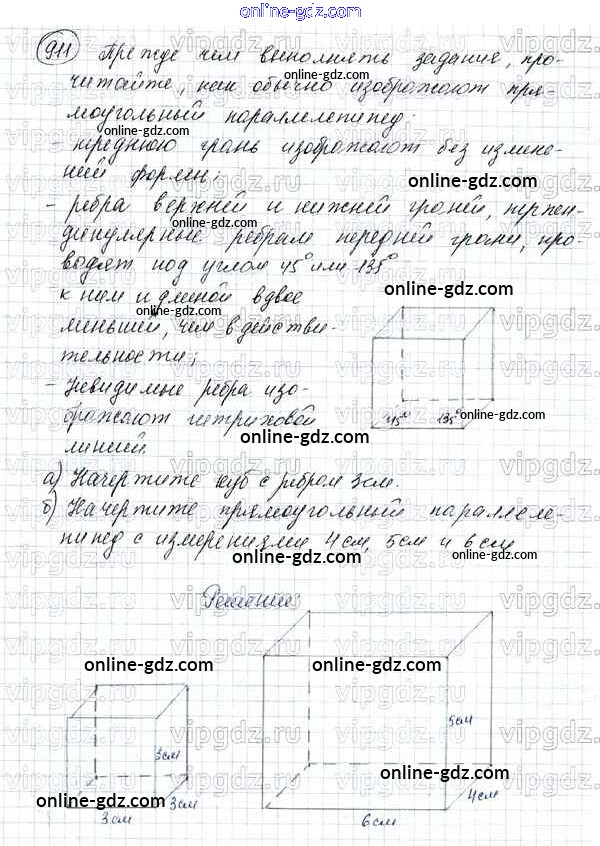 online-gdz.com
911 Прежде чем выполнять задание, про-
читайте, как обычно изображают пря-
моугольный параллелепипед:
- переднюю грань изображают без измене-
ний формы;
- ребра верхней и нижней граней, перпен-
дикулярные ребрам передней грани, про-
водят под углом 45° или 135°
к ним и длиной вдвое
меньшей, чем в действи-
тельности;
- невидимые ребра изо-
бражают штриховой
линией.
45° 135°
а) Начертите куб с ребром 3 см.
б) Начертите прямоугольный параллеле-
пипед с измерениями 4 см, 5 см и 6 см
Решение:
3 см
3 см
3 см
5 см
4 см
6 см
online-gdz.com
online-gdz.com
online-gdz.com
online-gdz.com
online-gdz.com
online-gdz.com
online-gdz.com
online-gdz.com
online-gdz.com
online-gdz.com
online-gdz.com
online-gdz.com
online-gdz.com
online-gdz.com
vipgdz.ru